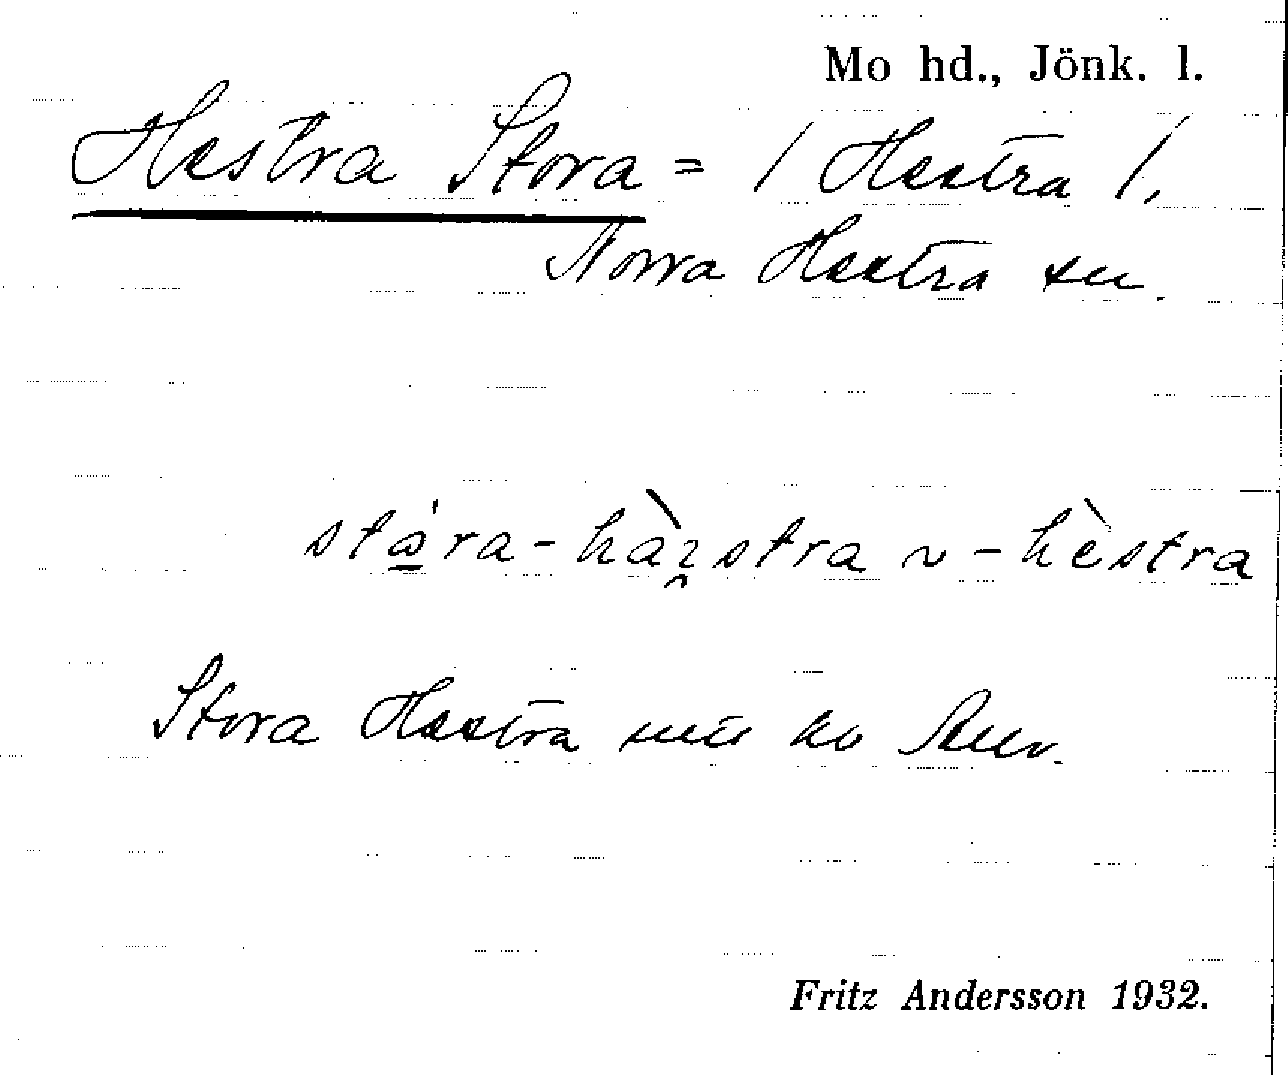 Mo hd., Jönk. l.
Hestra Stora = / Hestra /,
Norra Hestra sn.
stara-hazstra ~ -hèstra
Stora Hestra
Fritz Andersson 1932.